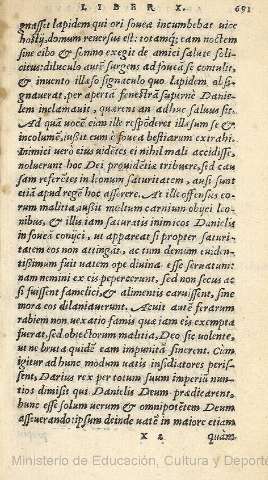 LIBER X. 691
gnasset lapidem qui ori foueæ incumbebat uice
hosty, domum reuersus est: totamq; eam noctem
sine cibo & somno exegit de amici salute soli-
citus: diluculo autē surgens ad foueā se contulit,
& inuento illæso signaculo quo lapidem obsi-
gnauerat, per aperta fenestrā supernè Daniê-
lem inclamauit, quærens an adhuc saluus sit.
Ad quā uocē cùm ille respōderet illæsum se &
incolumē, iußit eum è fouea bestiarum extrahi.
Inimici uerò eius uidētes ei nihil mali accidisse,
noluerunt hoc Dei prouidētiæ tribuere, sed cau
sam referētes in leonum saturitatem, ausi sunt
etiā apud regē hoc asserere. At ille offensus eo-
rum malitia, iußit multum carnium obijci leo-
nibus, & illis iam saturatis inimicos Danielis
in foueā conijci, ut appareat si propter saturi-
tatem eos non attingāt, ac tum demum euiden-
tißimum fuit uatem ope diuina esse seruatum:
nam nemini ex eis pepercerunt, sed non secus ac
si fuissent famelici, & alimentis caruissent, sine
mora eos dilaniauerunt. Acuit autē ferarum
rabiem non uexatio famis qua iam eis exempta
fuerat, sed obiectorum malitia, Deo sic uolente,
ut ne bruta quidē eam impunitā sinerent. Cum
igitur ad hunc modum uatis insidiatores perijs-
sent, Darius rex per totum suum imperiū nun-
tios dimisit qui Danielis Deum prædicarent,
hunc esse solum uerum & omnipotētem Deum
asseuerando: ipsum deinde uatē in maiore etiam
X 2 quàm
Ministerio de Educación, Cultura y Deporte